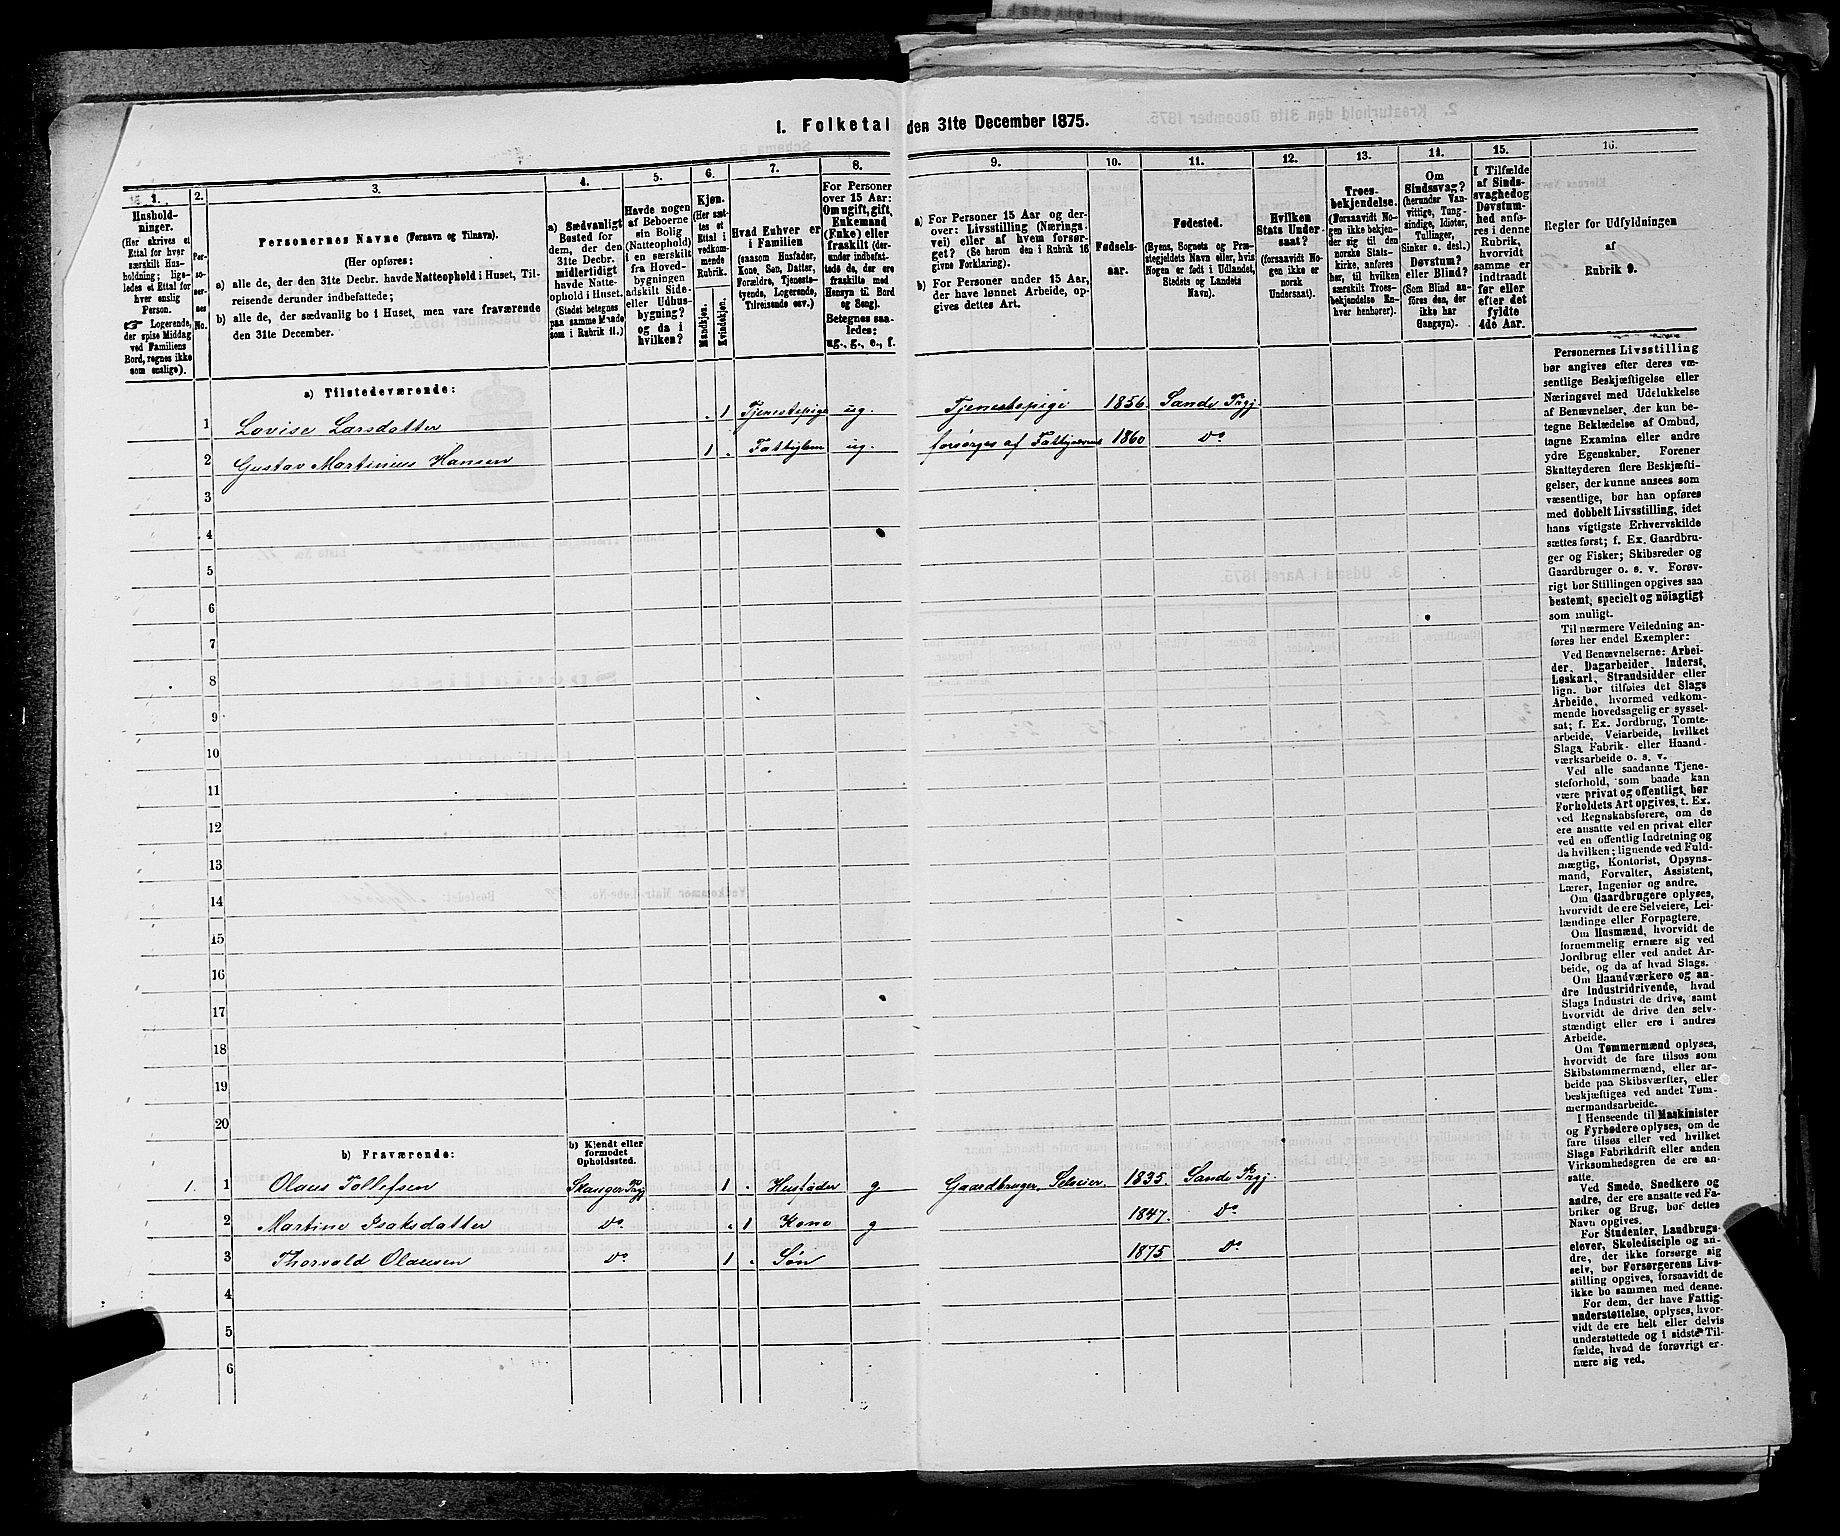 1. Folketal den 31te December 1875.
1.
Hushold-
ninger.
(Her skrives et
Ettal for hver
særskilt Hus-
holdning; lige-
ledes et Ettal for
hver enslig
Person.
☞ Logerende,
der spise Middag
ved Familiens
Bord, regnes ikke
som enslige).
2.
Per-
so-
ner-
nes
No.
3.
Personernes Navne (Fornavn og Tilnavn).
(Her opføres:
a) alle de, der den 31te Decbr. havde Natteophold i Huset, Til-
reisende derunder indbefattede;
b) alle de, der sædvanlig bo i Huset, men vare fraværende
den 31te December.
4.
a) Sædvanligt
Bosted for
dem, der den
31te Decbr.
midlertidigt
havde Natte-
ophold i Huset.
(Stedet betegnes
paa samme Maade
som i Rubrik 11.)
5.
Havde nogen
af Beboerne
sin Bolig
(Natteophold)
i en særskilt
fra Hoved-
bygningen
adskilt Side-
eller Udhus-
bygning?
og da i
hvilken?
6.
Kjøn.
(Her sæt-
tes et
Ettal i
vedkom-
mende
Rubrik.
Mandkjøn.
Kvindekjøn.
7.
Hvad Enhver er
i Familien
(saasom Husfader,
Kone, Søn, Datter,
Forældre, Tjeneste-
tyende, Logerende,
Tilreisende osv.)
8.
For Personer
over 15 Aar:
Om ugift, gift,
Enkemand
(Enke) eller
fraskilt (der-
under indbefat-
tede de, der ere
fraskilte med
Hensyn til Bord
og Seng).
Betegnes saa-
ledes:
ug., g., e., f.
9.
a) For Personer 15 Aar og der-
over: Livsstilling (Nærings-
vei) eller af hvem forsør-
get? (Se herom den i Rubrik 16
givne Forklaring).
b) For Personer under 15 Aar,
der have lønnet Arbeide, op-
gives dettes Art.
10.
Fødsels-
aar.
11.
Fødested.
(Byens, Sognets og Præ-
stegjeldets Navn eller, hvis
Nogen er født i Udlandet,
Stedets og Landets
Navn).
12.
Hvilken
Stats Under-
saat?
(forsaavidt No-
gen ikke er
norsk
Undersaat).
13.
Troes-
bekjendelse.
(Forsaavidt No-
gen ikke bekjen-
der sig til den
norske Stats-
kirke, anføres
her, til hvilken
særskilt Troes-
bekjendelse En-
hver henhører).
14.
Om
Sindssvag?
(herunder Van-
vittige, Tung-
sindige, Idioter,
Tullinger,
Sinker o. desl.)
Døvstum?
eller Blind?
(Som Blind an-
føres den, der
ikke har
Gangsyn).
15.
I Tilfælde
af Sinds-
svaghed og
Døvstum-
hed anfø-
res i denne
Rubrik,
hvorvidt
samme er
indtraadt
før eller
efter det
fyldte
4de Aar.
16.
Regler for Udfyldningen
af
Rubrik 9.
a) Tilstedeværende:
1 Lovise Larsdatter . 1 Tjenestepige ug. Tjenestepige 1856 Sande Prgj.
2 Gustav Martinius Hansen 1 . Fattiglem ug. forsørges af Fattigvæsenet 1860 do
3
4
5
6
7
8
9
10
11
12
13
14
15
16
17
18
19
20
b) Fraværende:
b) Kjendt eller
formodet
Opholdssted.
1. 1 Olaus Tollefsen Skauger Prgj 1 . Husfader g Gaardbruger, Selveier. 1835 Sande Prgj.
2 Martine Isaksdatter do . 1 Kone g 1847. do
3 Thorvald Olausen do 1 . Søn 1875 do
4
5
6
Personernes Livsstilling
bør angives efter deres væ-
sentlige Beskjæftigelse eller
Næringsvei med Udelukkelse
af Benævnelser, der kun be-
tegne Beklædelse af Ombud,
tagne Examina eller andre
ydre Egenskaber. Forener
Skatteyderen flere Beskjæfti-
gelser, der kunne ansees som
væsentlige, bør han opføres
med dobbelt Livsstilling, idet
hans vigtigste Erhvervskilde
sættes først; f. Ex. Gaardbru-
ger og Fisker; Skibsreder og
Gaardbruger o. s. v. Forøv-
rigt bør Stillingen opgives saa
bestemt, specielt og nöiagtigt
som muligt.
Til nærmere Veiledning an-
føres her endel Exempler:
Ved Benævnelserne: Arbei-
der, Dagarbeider, Inderst,
Løskarl, Strandsidder eller
lign. bør tilføies det Slags
Arbeide, hvormed vedkom-
mende hovedsagelig er syssel-
sat; f. Ex. Jordbrug, Tomte-
arbeide, Veiarbeide, hvilket
Slags Fabrik- eller Haand-
værksarbeide o. s. v.
Ved alle saadanne Tjene-
steforhold, som baade kan
være privat og offentligt, bør
Forholdets Art opgives, t. Ex.
ved Regnskabsførere, om de
ere ansatte ved en privat eller
ved en offentlig Indretning og
da hvilken; lignende ved Fuld-
mægtig, Kontorist, Opsyns-
mand, Forvalter, Assistent,
Lærer, Ingeniør og andre.
Om Gaardbrugere oplyses,
hvorvidt de ere Selveiere, Lei-
lændinge eller Forpagtere.
Om Husmænd, hvorvidt de
fornemmelig ernære sig ved
Jordbrug eller ved andet Ar-
beide, og da af hvad Slags.
Om Haandværkere og an-
dre Industridrivende, hvad
Slags Industri de drive, samt
hvorvidt de drive den selv-
stændigt eller ere i andres
Arbeide.
Om Tømmermænd oplyses,
hvorvidt de fare tilsøs som
Skibstømmermænd, eller ar-
beide paa Skibsværfter, eller
beskjæftiges ved andet Tøm-
mermandsarbeide.
I Henseende til Maskinister
og Fyrbødere oplyses, om de
fare tilsøs eller ved hvilket
Slags Fabrikdrift eller anden
Virksomhedsgren de ere an-
satte.
Ved Smede, Snedkere og
andre, der ere ansatte ved Fa-
briker og Brug, bør dettes
Navn opgives.
For Studenter, Landbrugs-
elever, Skoledisciple og an-
dre, der ikke forsørge sig
selv, bør Forsørgerens Livs-
stilling opgives, forsaavidt de
ikke bo sammen med denne.
For dem, der have Fattig-
understøttelse, oplyses, hvor-
vidt de ere helt eller delvis
understøttede og i sidste Til-
fælde, hvad de forøvrigt er-
nære sig ved.